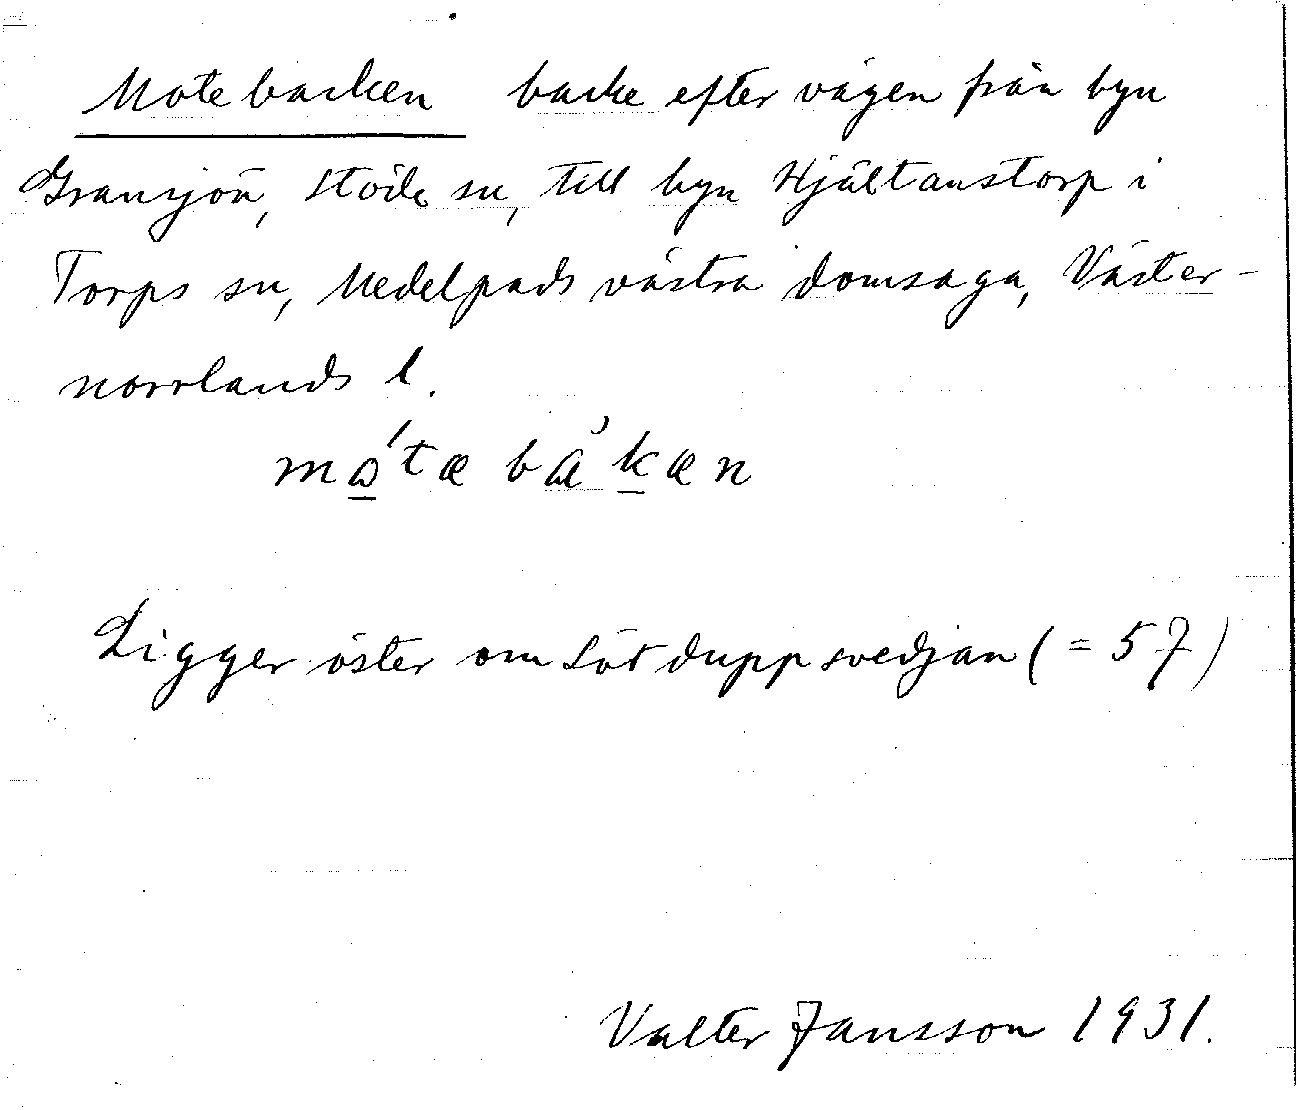 Motebacken backe efter vägen från byn
Gransjön, Stöde sn, till byn Hjältanstorp i
Torps sn, Medelpads västra domsaga, Väster-
norrlands l.
Ligger öster om Sörduppsvedjan (= 57)
Valter Jansson 1931.